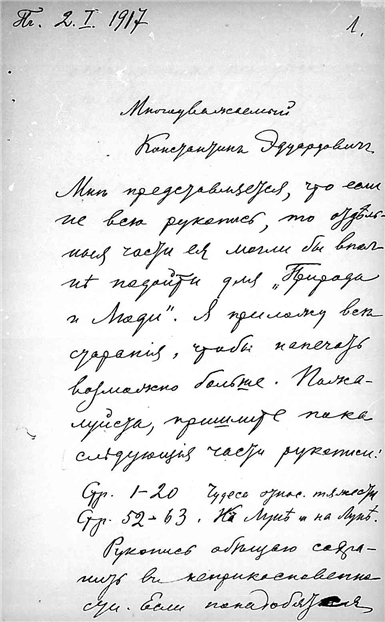 Пг. 2.I.1917
1.
Многоуважаемый
Константинъ Эдуардовичъ
Мнѣ представляется, что если
не всю рукопись, то отдѣль-
ныя части ея могли бы впол-
нѣ подойти для „Природы
и Люди". Я приложу всѣ
старанія, чтобы напечать
возможно больше. Пожа-
луйста, пришлите пока
слѣдующія части рукописи:
Стр. 1-20 Чудеса относ. тяжести
Стр. 52-63. На Лунѣ и на Лунѣ.
Рукопись обѣщаю сохра-
нить въ неприкосновенно-
сти. Если понадобятся